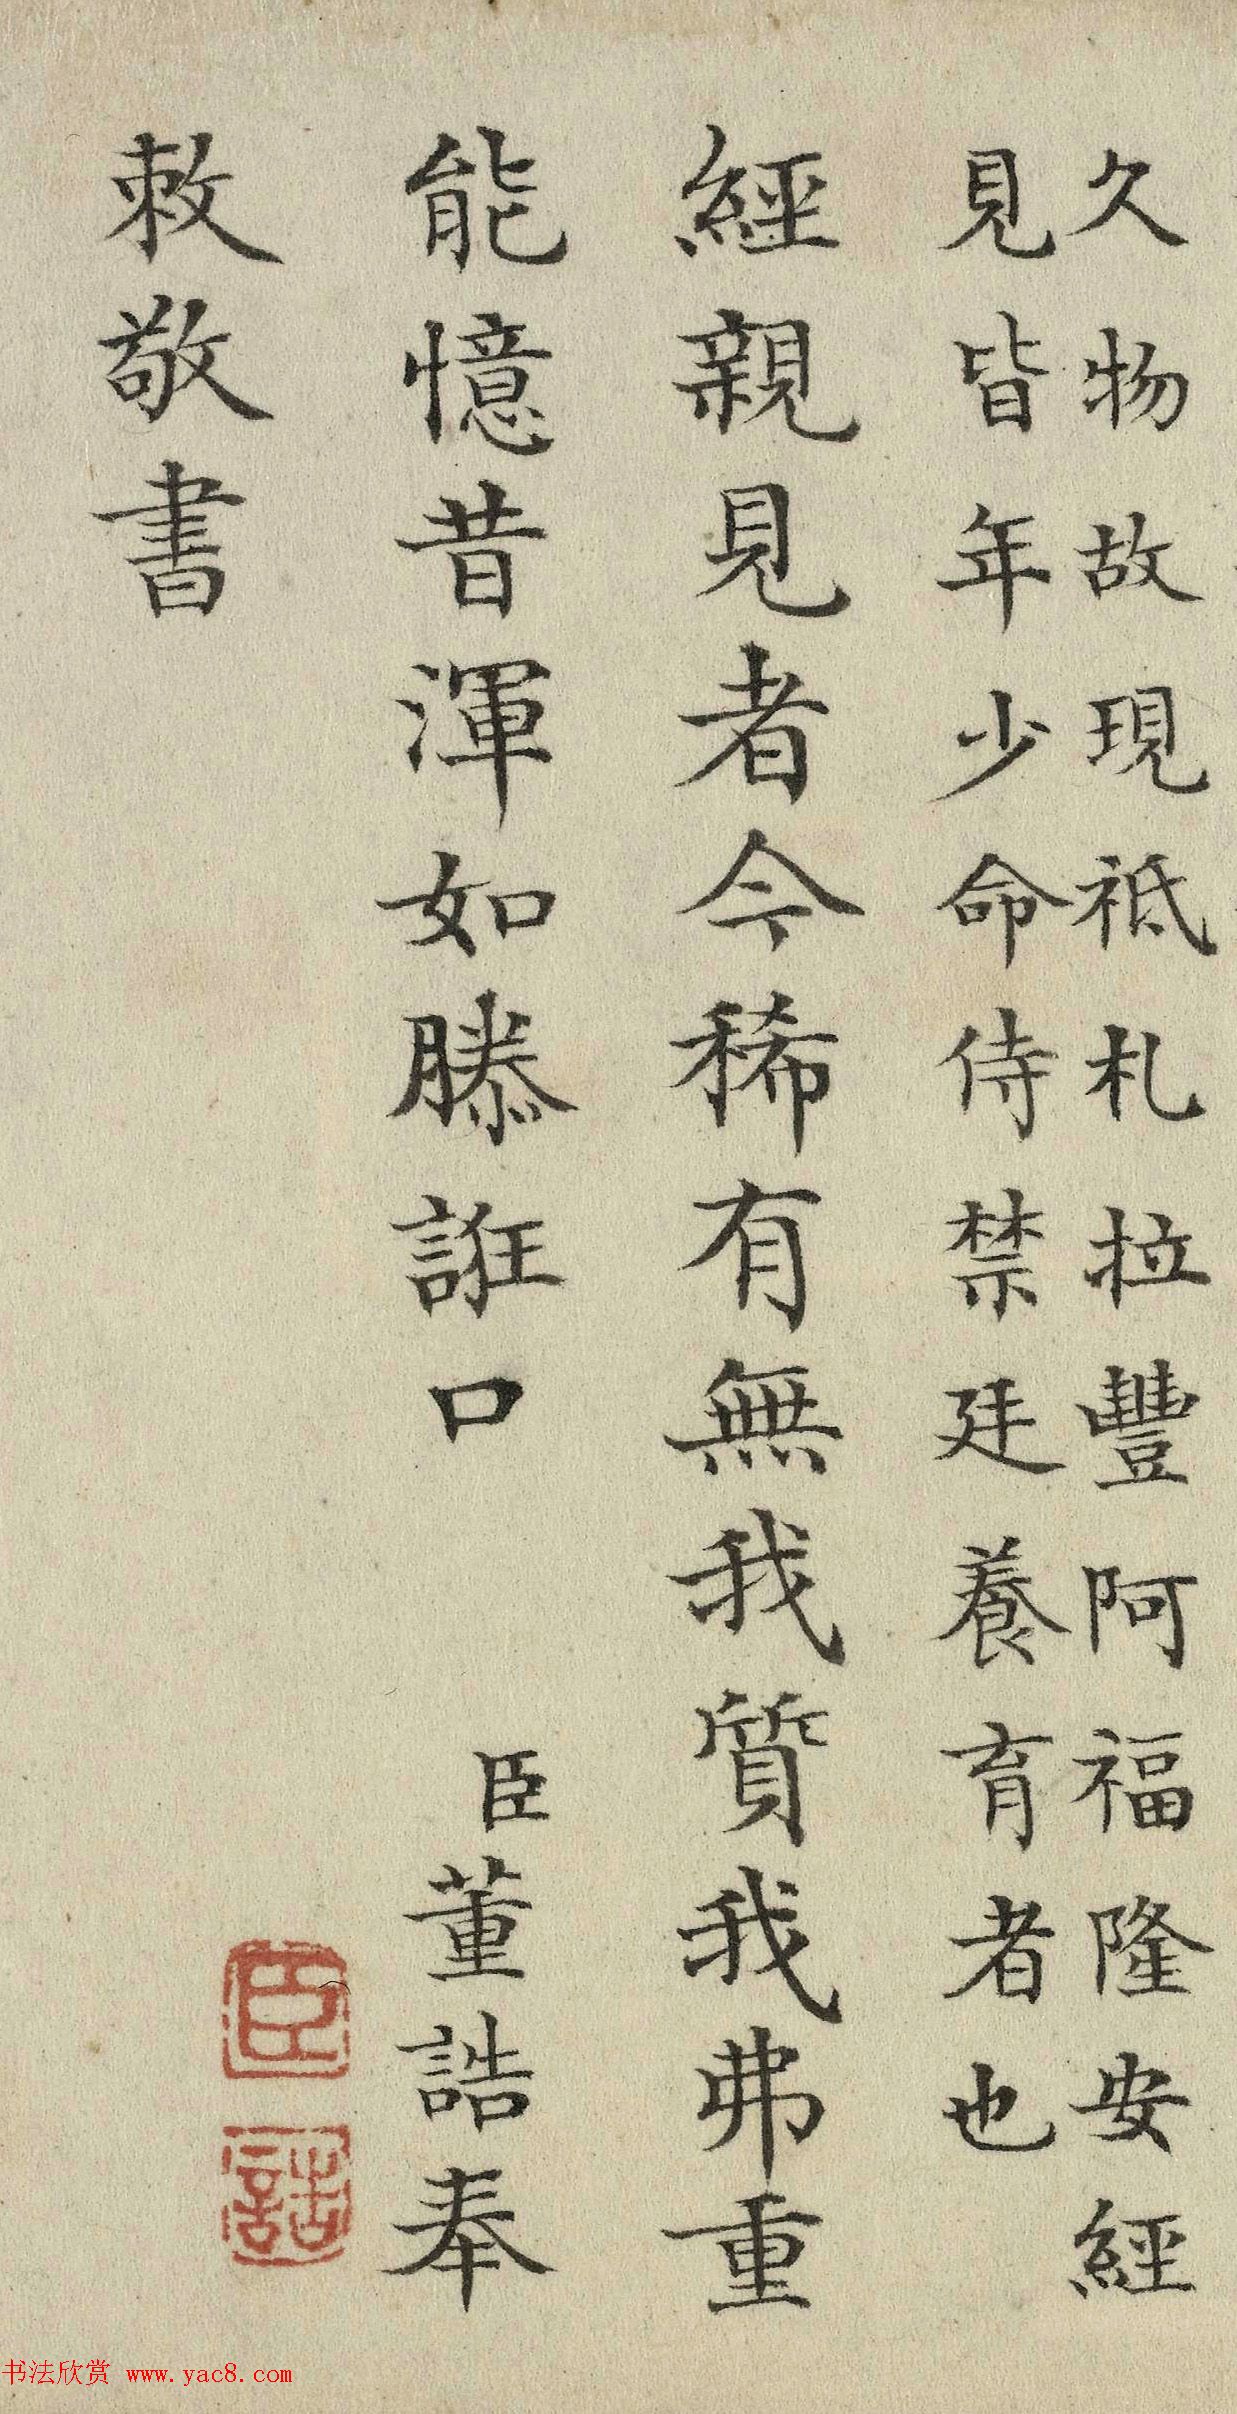 久物故現祗札拉豐阿福隆安經
見皆年少命侍禁廷養育者也
經親見者今稀有無我質我弗重
能憶昔渾如滕誑口
臣董誥奉
敕敬書
臣
誥
书法欣赏 www.yac8.com